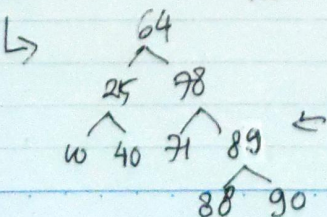 64
25 78
10 40 71 89
88 90